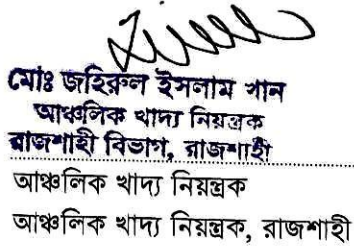 মোঃ জহিরুল ইসলাম খান
আঞ্চলিক খাদ্য নিয়ন্ত্রক
রাজশাহী বিভাগ, রাজশাহী
আঞ্চলিক খাদ্য নিয়ন্ত্রক
আঞ্চলিক খাদ্য নিয়ন্ত্রক, রাজশাহী